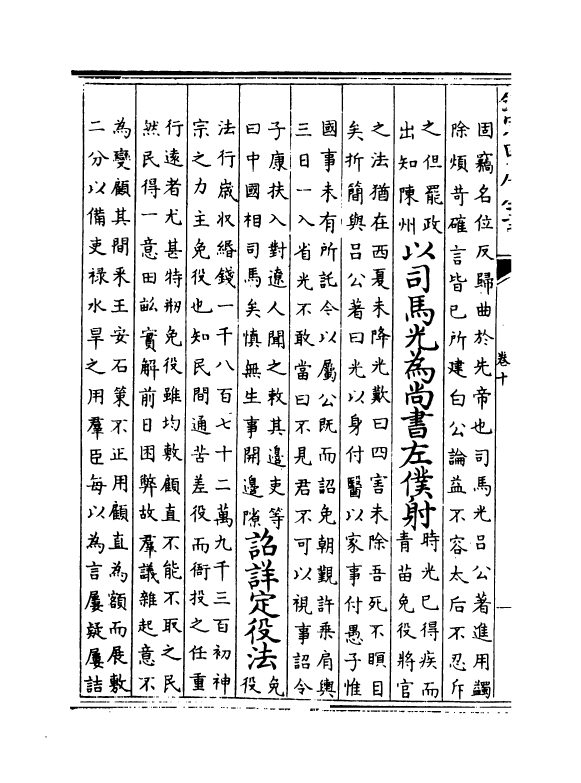 固竊名位反歸曲於先帝也司馬光呂公著進用蠲
除煩苛確言皆已所建白公論益不容太后不忍斥
之但罷政
出知陳州
以司馬光為尚書左僕射
時光已得疾而
青苗免役將官
之法猶在西夏未降光歎曰四害未除吾死不瞑目
矣折簡與呂公著曰光以身付醫以家事付愚子惟
國事未有所託今以屬公既而詔免朝覲許乘肩輿
三日一入省光不敢當曰不見君不可以視事詔令
子康扶入對遼人聞之敕其邊吏等
曰中國相司馬矣慎無生事開邊隙
詔詳定役法
免
役
法行歲收緡錢一千八百七十二萬九千三百初神
宗之力主免役也知民間通苦差役而衙投之任重
行遠者尤甚特剏免役雖均敷顧直不能不取之民
然民得一意田畝實解前日困弊故羣議雜起意不
為變顧其間釆王安石策不正用顧直為額而展敷
二分以備吏祿水旱之用羣臣每以為言屢疑屢詰
卷十